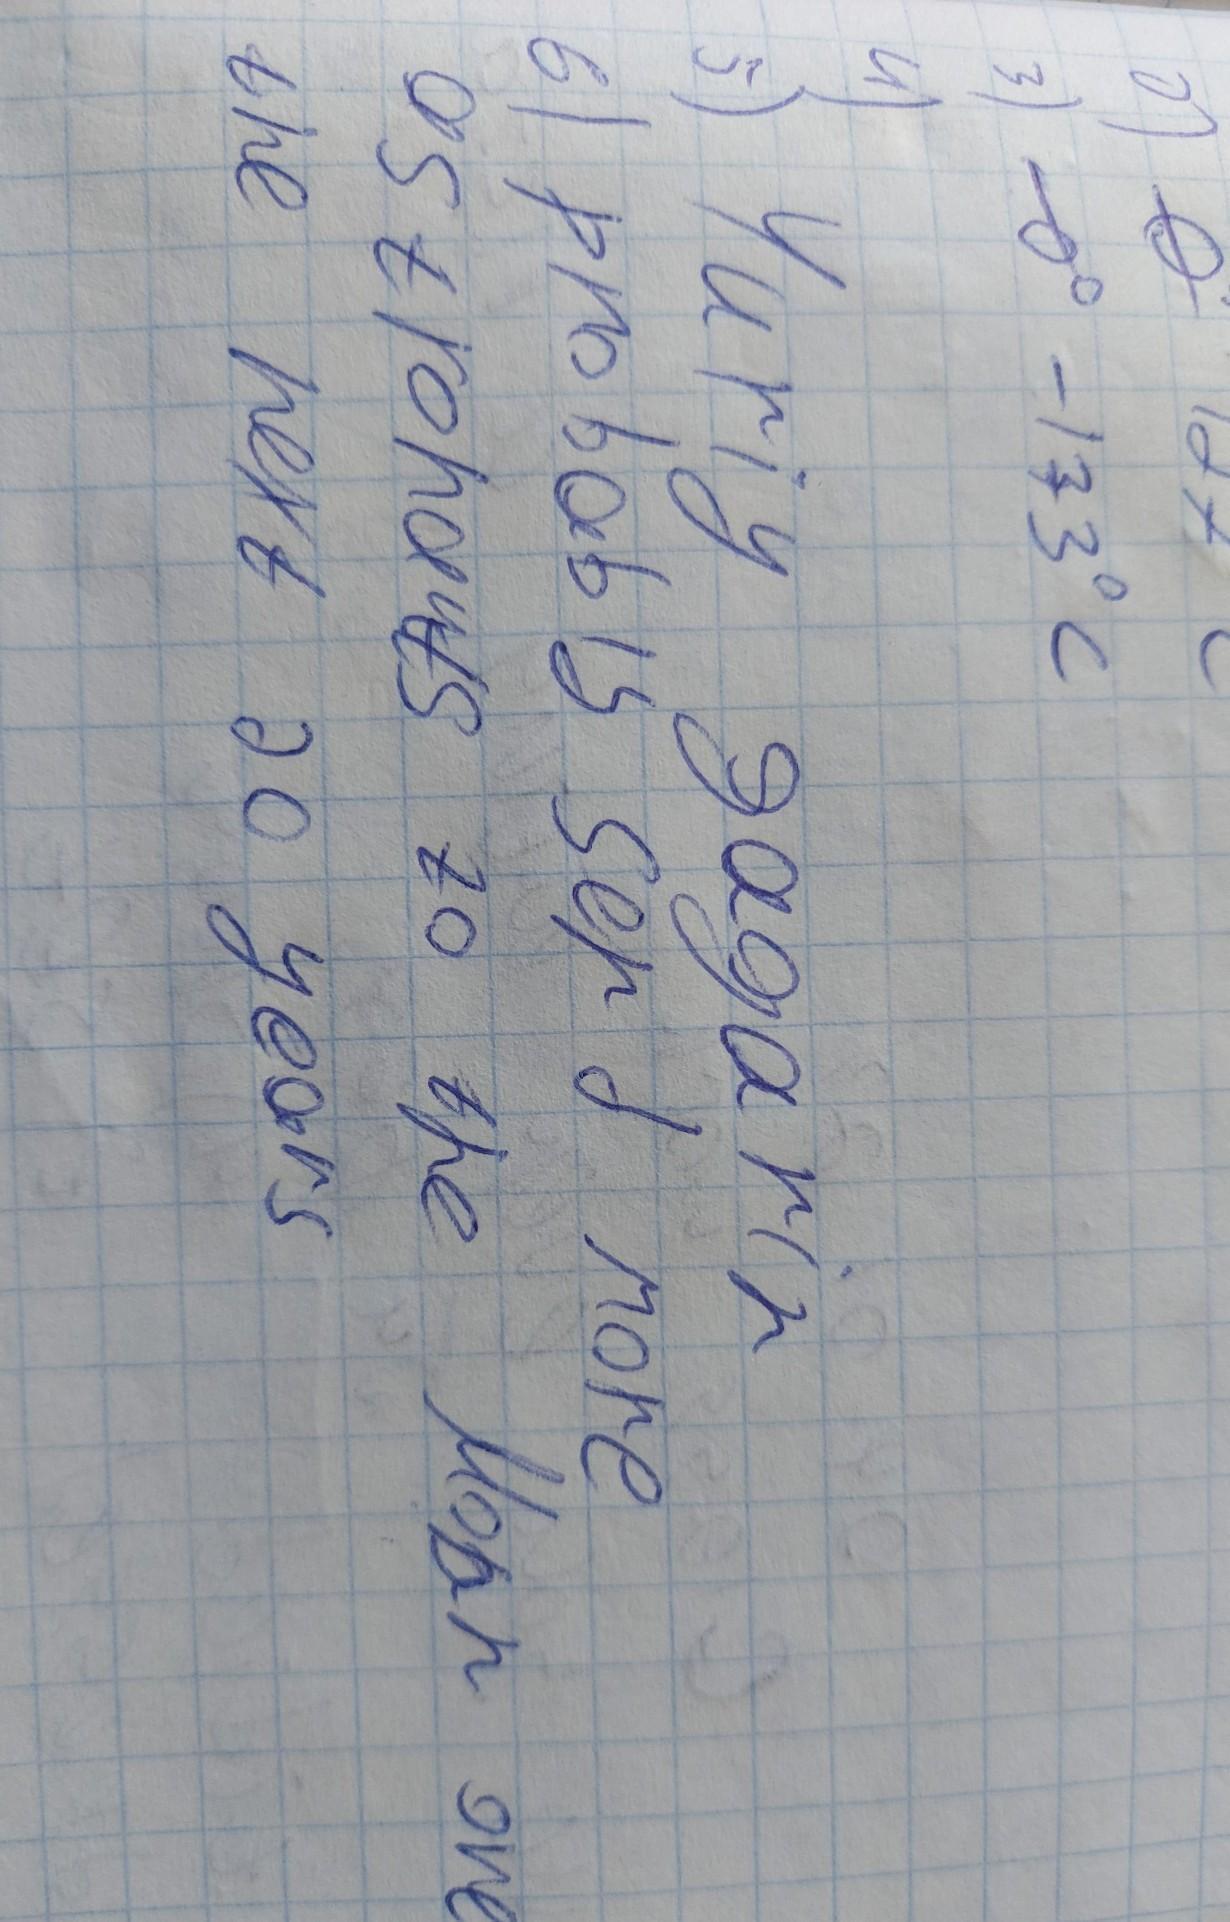 2)
3) -173°C
4)
5) Yuriy gagarin
6) probably send more
astrohauts to the Moon ove
the next 20 years